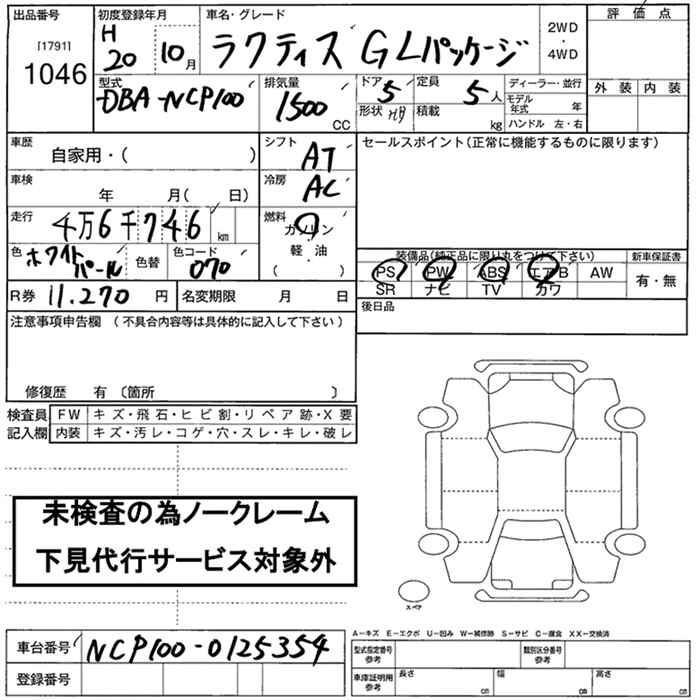 出品番号 初度登録年月 車名・グレード 評価点
[1791] H 2WD
1046 20 10月 ラクティス GLパッケージ ・
4WD
外装 内装
型式 排気量 ドア 5 定員 ディーラー・並行
DBA-NCP100 1500 CC 形状 積載 5人 モデル年式 年
kg ハンドル 左・右
車歴 シフト セールスポイント(正常に機能するものに限ります)
自家用・( ) AT
車検 冷房
年 月( 日) AC
走行 燃料
4万6千746km ガソリン
色 色コード 軽油
ホワイトパール 色替 070 ・( )
装備品(純正品に限り丸をつけて下さい) 新車保証書
PS PW ABS エアB AW 有・無
SR ナビ TV カワ
R券 11.270 円 名変期限 月 日 後日品
注意事項申告欄 (不具合内容等は具体的に記入して下さい)
修復歴 有 〔箇所 〕
検査員 FW キズ・飛石・ヒビ割・リペア跡・X要
記入欄 内装 キズ・汚レ・コゲ・穴・スレ・キレ・破レ
未検査の為ノークレーム
下見代行サービス対象外
スペア
A-キズ E-エクボ U-凹み W-補修跡 S-サビ C-腐食 XX-交換済
車台番号 NCP100-0125354
型式指定番号 参考 類別区分番号 参考
登録番号
車庫証明用 参考 長さ cm 幅 cm 高さ cm